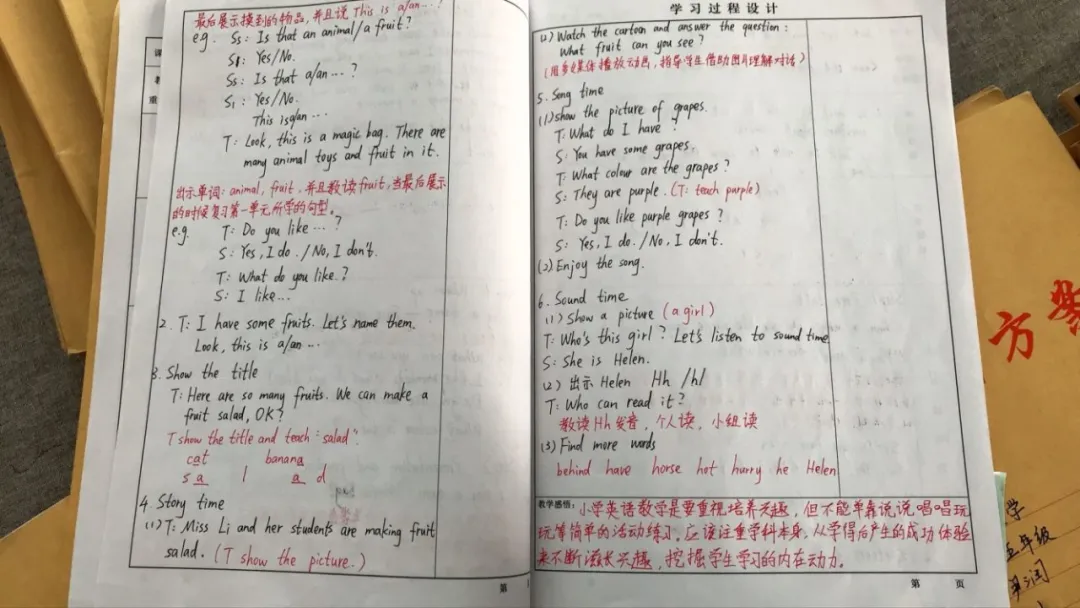 最后展示摸到的物品,并且说 This is a/an…?
e.g. Ss: Is that an animal/a fruit?
S1: Yes/No.
Ss: Is that a/an…?
S1: Yes/No.
This is a/an…
T: Look, this is a magic bag. There are
many animal toys and fruit in it.
出示单词: animal, fruit, 并且教读 fruit, 当最后展示
的时候复习第一单元所学的句型。
e.g. T: Do you like…?
S: Yes, I do. / No, I don't.
T: What do you like.?
S: I like…
2. T: I have some fruits. Let's name them.
Look, this is a/an…
3. Show the title
T: Here are so many fruits. We can make a
fruit salad, OK?
T show the title and teach "salad".
cat banana
s a l a d
4. Story time
(1) T: Miss Li and her students are making fruit
salad. (T show the picture.)
第
学习过程设计
(2) Watch the cartoon and answer the question:
What fruit can you see?
(用多媒体播放动画,指导学生借助图片理解对话)
5. Song time
(1) show the picture of grapes.
T: What do I have?
S: You have some grapes.
T: What colour are the grapes?
S: They are purple. (T: teach purple)
T: Do you like purple grapes?
S: Yes, I do. / No, I don't.
(2) Enjoy the song.
6. Sound time
(1) Show a picture (a girl)
T: Who's this girl? Let's listen to sound time
S: She is Helen.
(2) 出示 Helen Hh /h/
T: Who can read it?
教读 Hh 发音, 个人读, 小组读
(3) Find more words
behind have horse hot hurry he Helen
教学感悟: 小学英语教学是要重视培养兴趣, 但不能单靠说说唱唱玩
玩等简单的活动练习。应该注重学科本身, 从学得后产生的成功体验
来不断滋长兴趣, 挖掘学生学习的内在动力.
第 页
方案
学
五年级